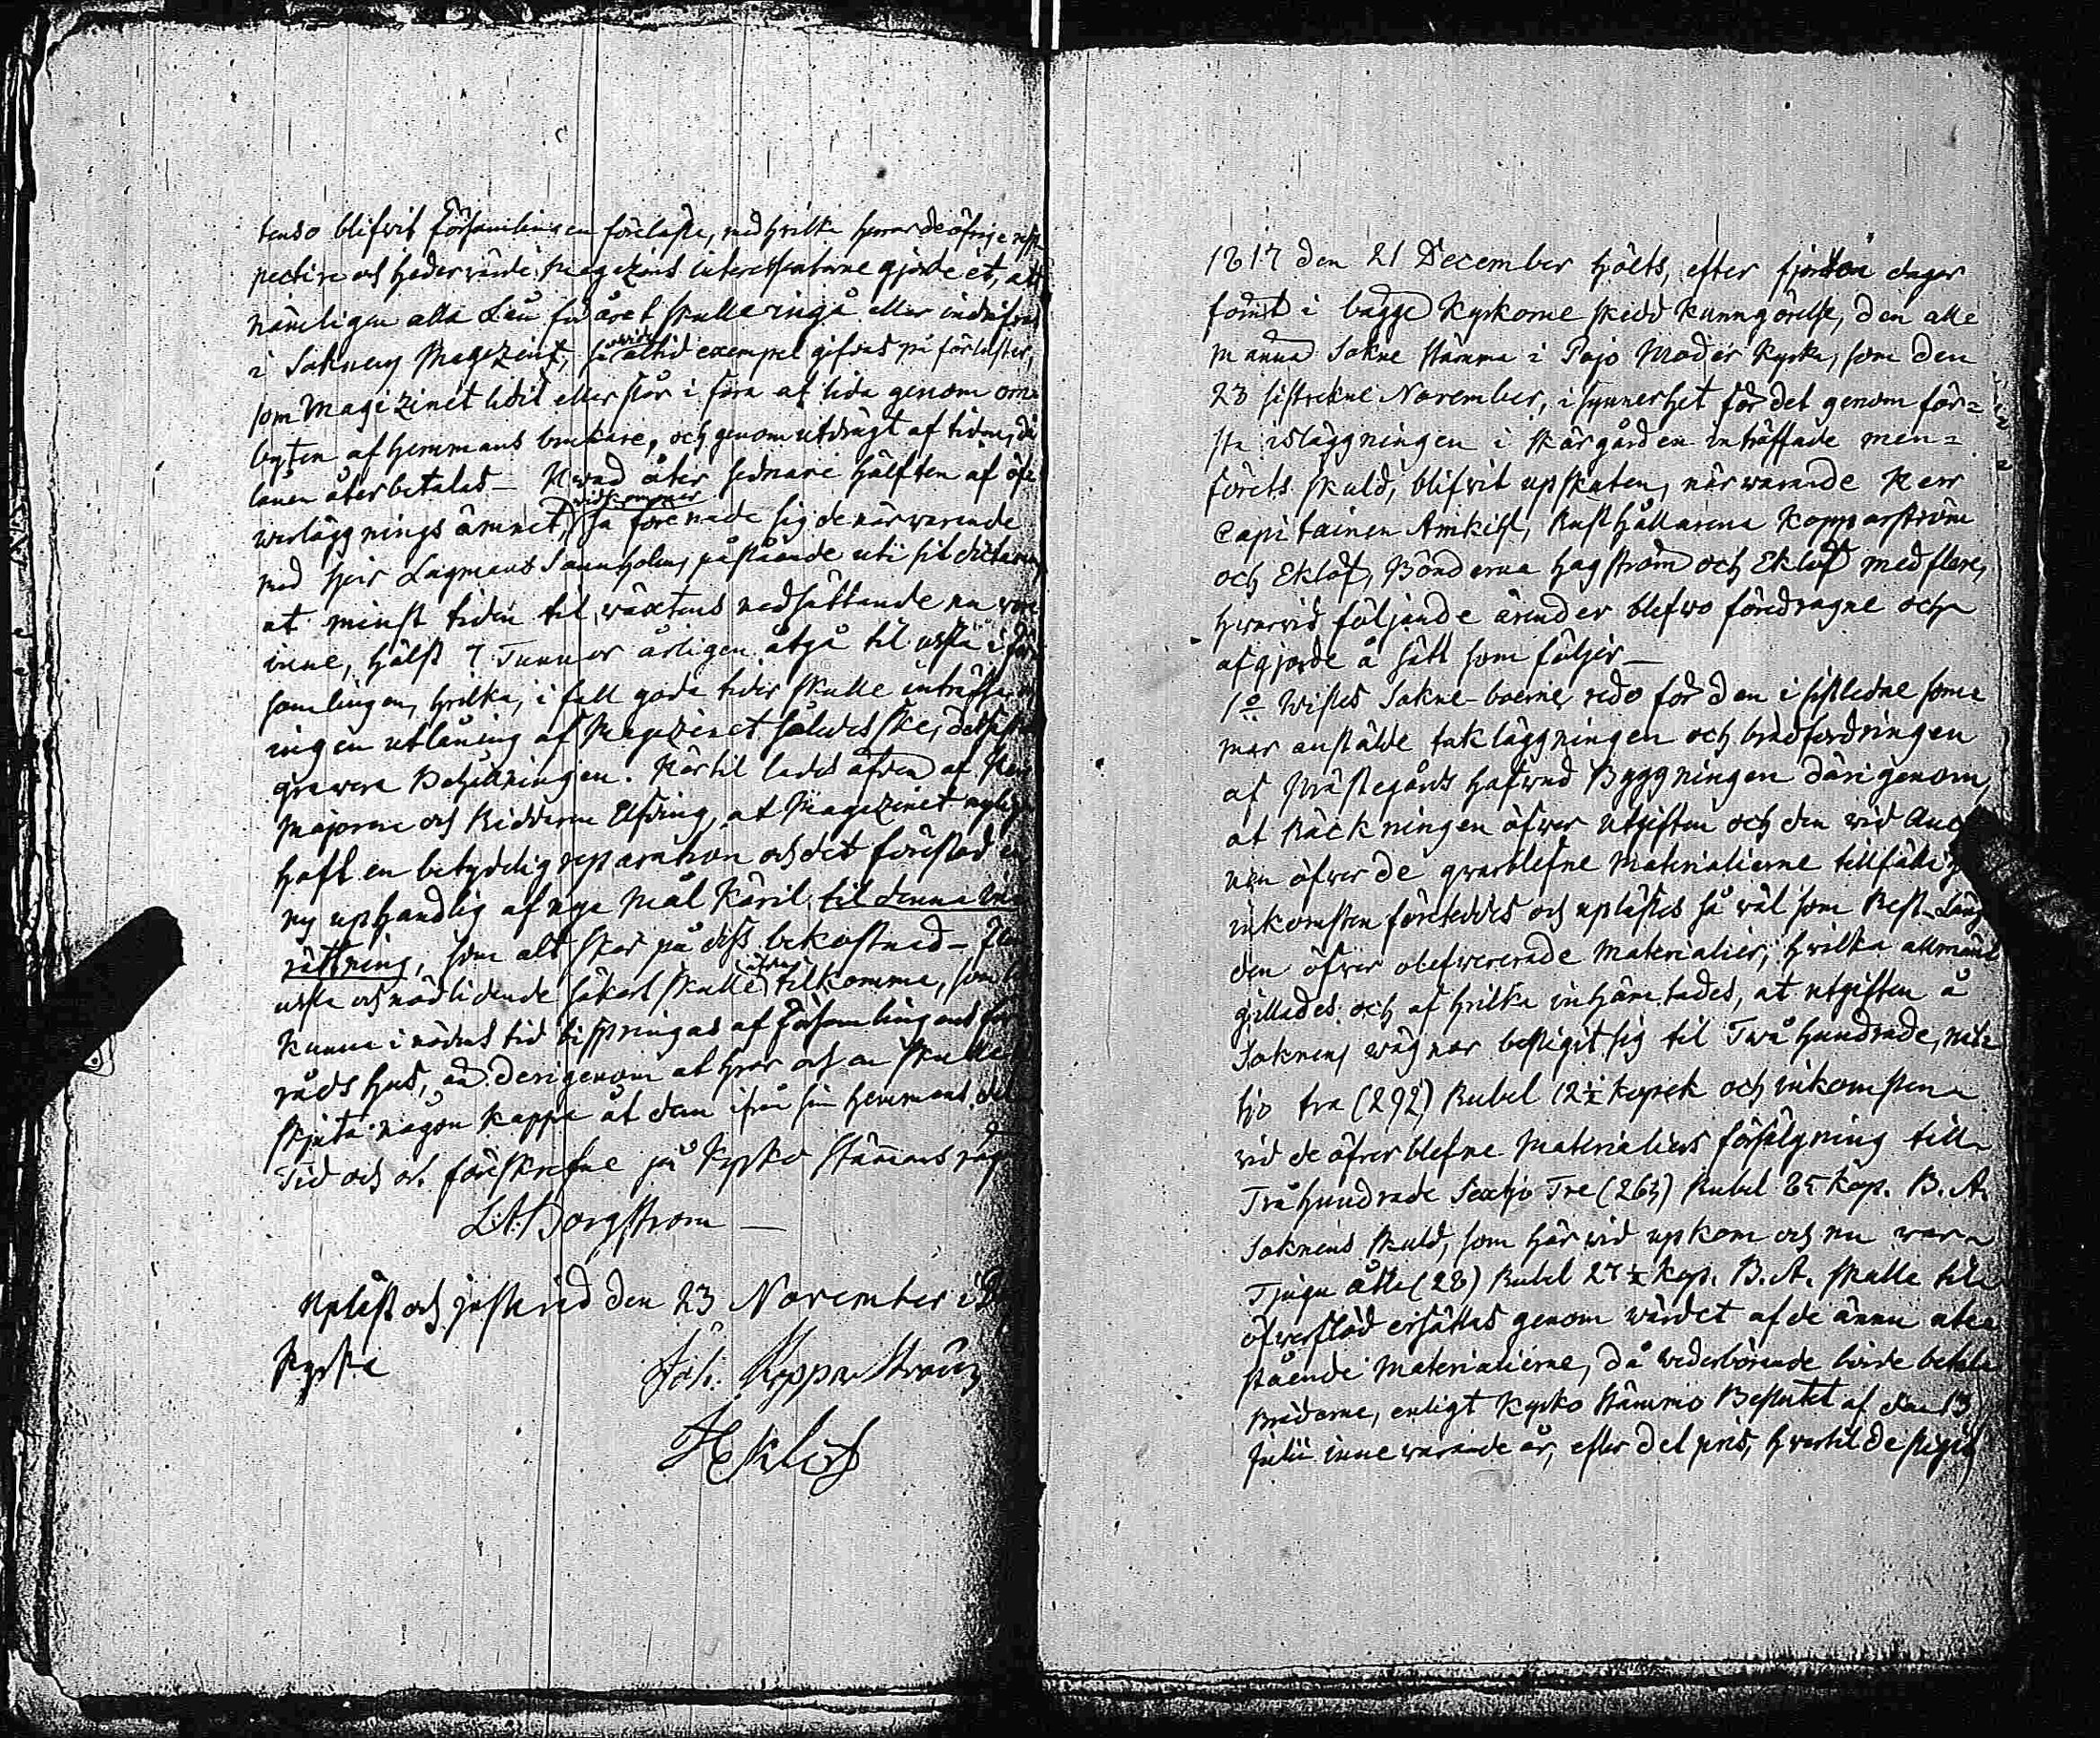 tenso blifvit Församlingen föreläste, med hvilka herrar de öfrige res-
pective och hedervärde Magazins interessenterne gjorde et, att
nämligen alla Lån för året skulle ingå eller indrifvas
i Soknens Magazin, så vida altid exempel gifvas på förluster,
som Magazinet lidit eller står i fara at lida genom om-
byten af hemmans brukare, och genom utdrägt af tiden, då
lånen återbetalas – Hvad åter sednare hälften af öf-
werläggnings ämnet vidkommer, så förenade sig de närvarande
med Herr Lagmans påstående uti sit dictamen
at minst tiden til växtens nedsättande nu vore
inne, hälst 7 Tunnor årligen åtgå til usla i För-
samlingen, hvilka, i fall goda tider skulle inträffa och
ingen utlåning af Magazinet således ske,
gravera Behållningen. Härtil lades äfven af Herr
Majoren och Riddaren Elfving, at Magazinet nyligen
haft en betydelig reparation och det förestod en
ny uphandlig af nya Mål Käril til denna In-
rättning, som alt sker på dess bekostnad –
usla och nödlidande säkert skulle äfven tilkomma, som
kunna i nödens tid bispringas af Församlingens för-
råds hus, än derigenom at hvar och en skulle
skjuta någon kappa åt dem ifrån sin hemmans del
Tid och ort föreskrefne på Kyrko Stämmans vägnar
L: A: Borgström —
Upläst och justerad den 23 November i
Kyrka
Joh: Kopparström
H Eklöf
1817 den 21 December hölts, efter fjorton dagar
förut i bägge Kyrkorne skedd kunngörelse, den alle
manna Sokne stämma i Pojo Moder Kyrka, som den
23 sistvekne November, i synnerhet för det genom för=
sta isläggningen i skärgården inträffade men=
förets skuld, blifvit upskuten, närwarande Herr
Capitainen Amkist, Rusthållarena Kopparström
och Eklöf, Bönderna Hagström och Eklöf med flere,
hvarvid följande ärender blefwo föredragne och
afgjorde å sätt som följer –
1o Wistes Sokne-boerne redo för den i sistledne som-
mar anstälde takläggningen och brädfordringen
af Prästegårds hufvud Byggningen därigenom,
at Räckningen öfver utgiften och den vid Auc
nen öfver de qvarblefne Materialierne tillfällige
inkomsten företeddes och uplästes så väl som Rest-Läng
den öfver olefvererade Materialier, hvilka allmänt
gillades och af hvilka inhämtades, at utgiften å
Soknens vägnar bestigit sig til Twå hundrade, nit-
tjo tva (292) Rubel 12½ kopek och inkomsten
vid de öfverblefne Materialiers försälgning till
Två hundrade Sextjo Tre (263) Rubel 85 kop. B. A.
Soknens skuld, som här vid upkom och nu var
Tjugu åtta (28) Rubel 27½ kop. B. A. skulle til
öfverflöd ersättas genom värdet af de ännu ute
stående Materialierne, då vederbörande borde betala
Bräderne, enligt Kyrko Stämmo Beslutet af den 13
Julii innevarande år, efter det pris, hvartil de stigit